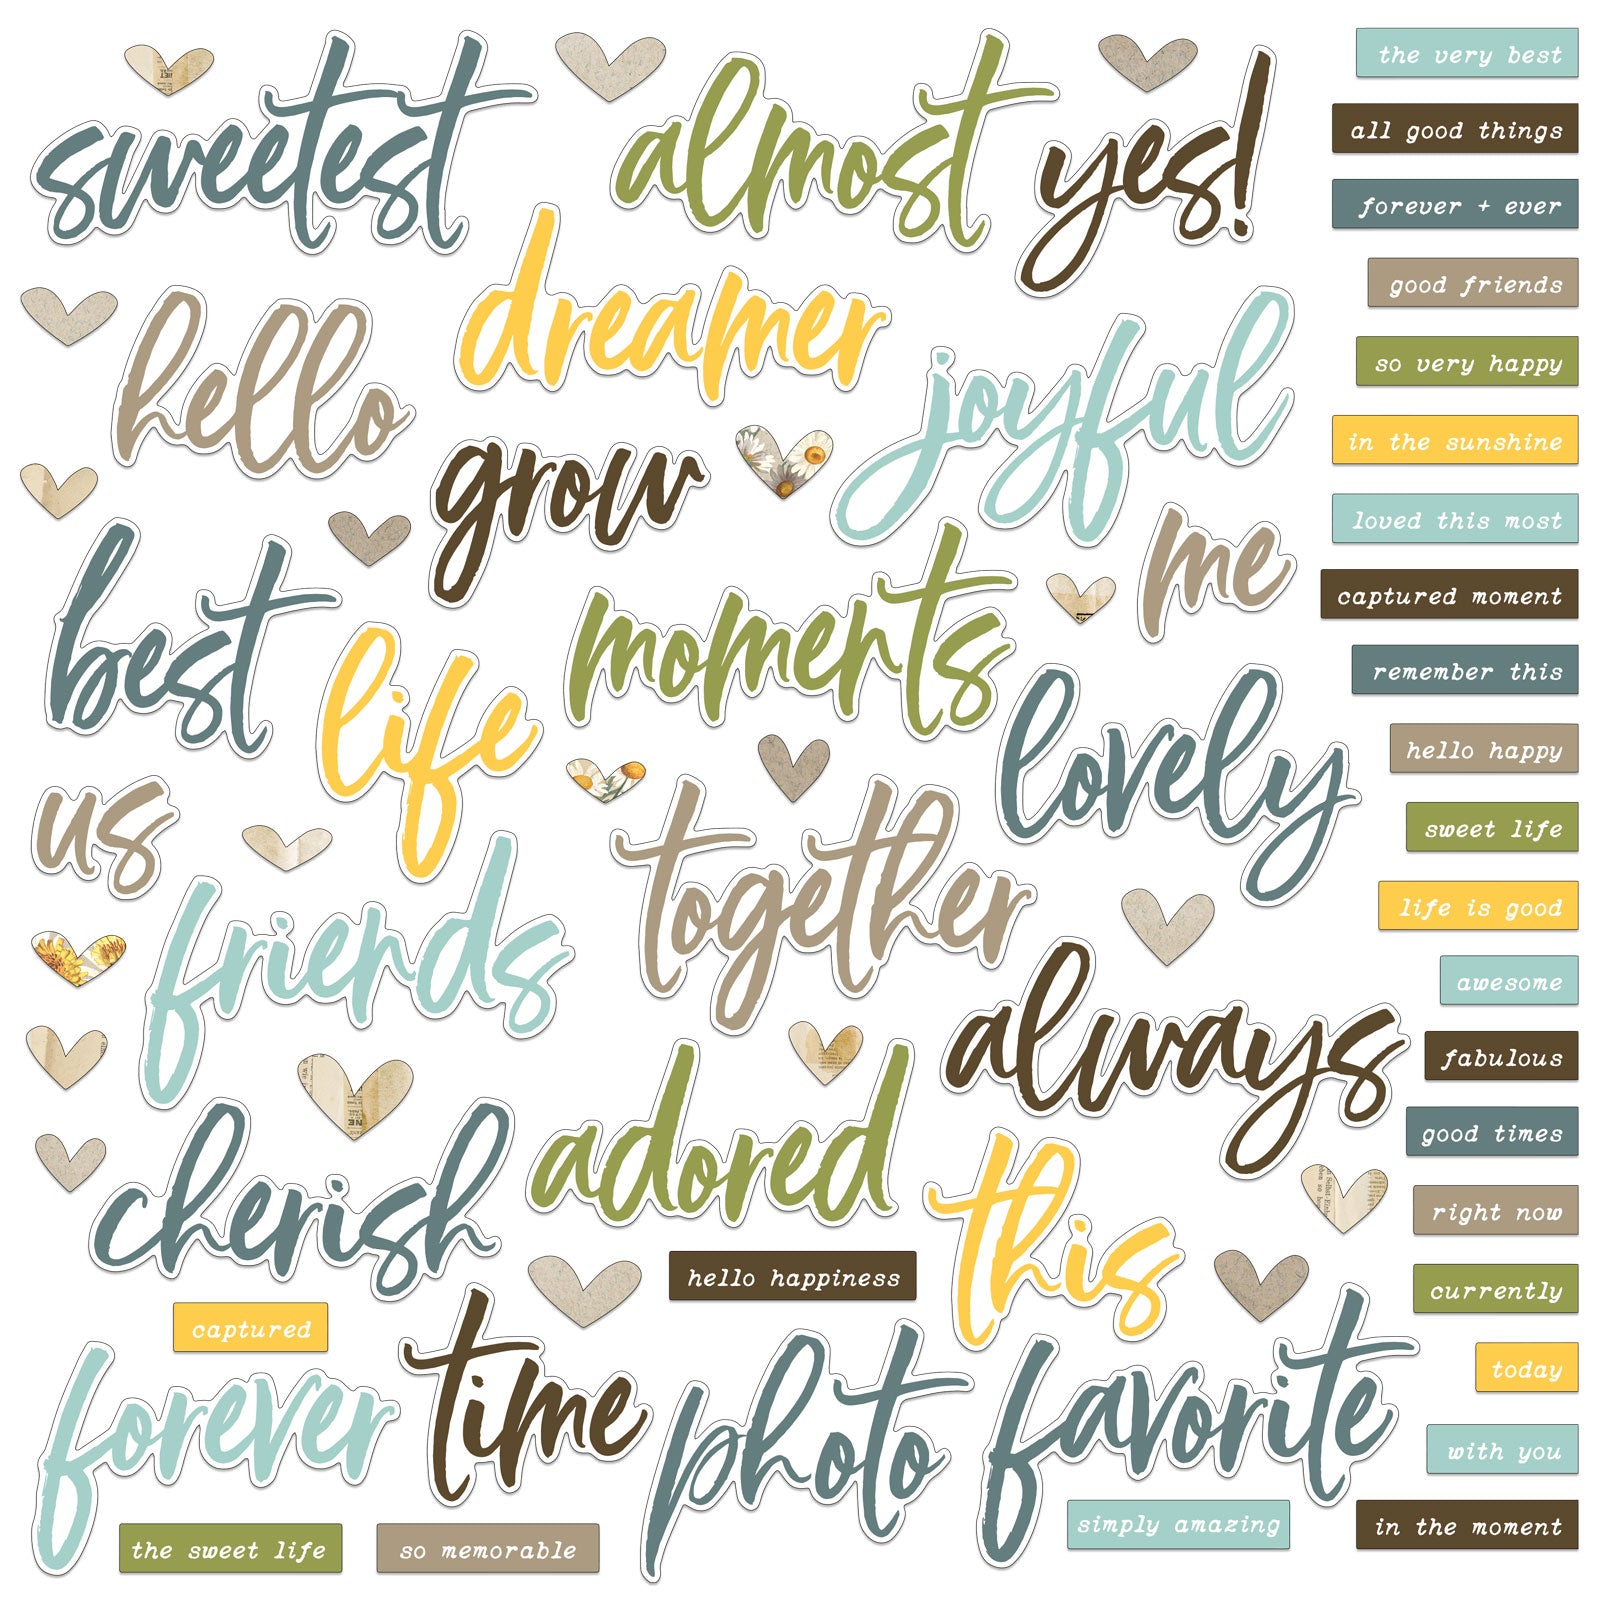 sweetest
almost
yes!
the very best
all good things
forever + ever
hello
dreamer
joyful
good friends
so very happy
in the sunshine
grow
loved this most
best
moments
me
captured moment
life
lovely
remember this
hello happy
us
together
sweet life
friends
life is good
always
awesome
fabulous
cherish
adored
this
good times
right now
hello happiness
currently
captured
forever
time
photo
favorite
today
with you
simply amazing
in the moment
the sweet life
so memorable